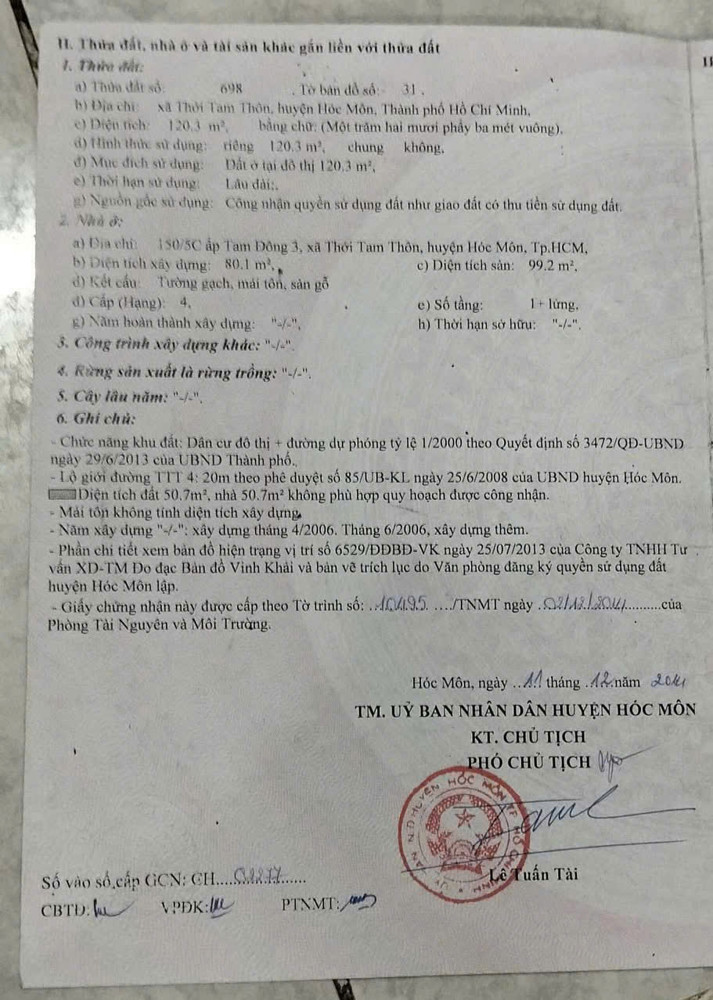 II. Thửa đất, nhà ở và tài sản khác gắn liền với thửa đất
1. Thửa đất:
a) Thửa đất số: 698 . Tờ bản đồ số: 31 .
b) Địa chỉ: xã Thới Tam Thôn, huyện Hóc Môn, Thành phố Hồ Chí Minh,
c) Diện tích: 120.3 m², bằng chữ: (Một trăm hai mươi phẩy ba mét vuông),
d) Hình thức sử dụng: riêng 120.3 m², chung không,
đ) Mục đích sử dụng: Đất ở tại đô thị 120.3 m²,
e) Thời hạn sử dụng: Lâu dài;,
g) Nguồn gốc sử dụng: Công nhận quyền sử dụng đất như giao đất có thu tiền sử dụng đất.
2. Nhà ở:
a) Địa chỉ: 150/5C ấp Tam Đông 3, xã Thới Tam Thôn, huyện Hóc Môn, Tp.HCM,
b) Diện tích xây dựng: 80.1 m², c) Diện tích sàn: 99.2 m²,
d) Kết cấu: Tường gạch, mái tôn, sàn gỗ
đ) Cấp (Hạng): 4, e) Số tầng: 1+ lửng,
g) Năm hoàn thành xây dựng: "-/-", h) Thời hạn sở hữu: "-/-".
3. Công trình xây dựng khác: "-/-".
4. Rừng sản xuất là rừng trồng: "-/-".
5. Cây lâu năm: "-/-".
6. Ghi chú:
- Chức năng khu đất: Dân cư đô thị + đường dự phóng tỷ lệ 1/2000 theo Quyết định số 3472/QĐ-UBND
ngày 29/6/2013 của UBND Thành phố.
- Lộ giới đường TTT 4: 20m theo phê duyệt số 85/UB-KL ngày 25/6/2008 của UBND huyện Hóc Môn.
Diện tích đất 50.7m², nhà 50.7m² không phù hợp quy hoạch được công nhận.
- Mái tôn không tính diện tích xây dựng.
- Năm xây dựng "-/-": xây dựng tháng 4/2006. Tháng 6/2006, xây dựng thêm.
- Phần chi tiết xem bản đồ hiện trạng vị trí số 6529/ĐĐBĐ-VK ngày 25/07/2013 của Công ty TNHH Tư
vấn XD-TM Đo đạc Bản đồ Vinh Khải và bản vẽ trích lục do Văn phòng đăng ký quyền sử dụng đất
huyện Hóc Môn lập.
- Giấy chứng nhận này được cấp theo Tờ trình số: ..10495. ..../TNMT ngày .02/12/2014..........của
Phòng Tài Nguyên và Môi Trường.
Hóc Môn, ngày ..11 tháng .12.năm 2014
TM. UỶ BAN NHÂN DÂN HUYỆN HÓC MÔN
KT. CHỦ TỊCH
PHÓ CHỦ TỊCH
Lê Tuấn Tài
Số vào sổ cấp GCN: CH
CBTĐ: VPĐK: PTNMT: